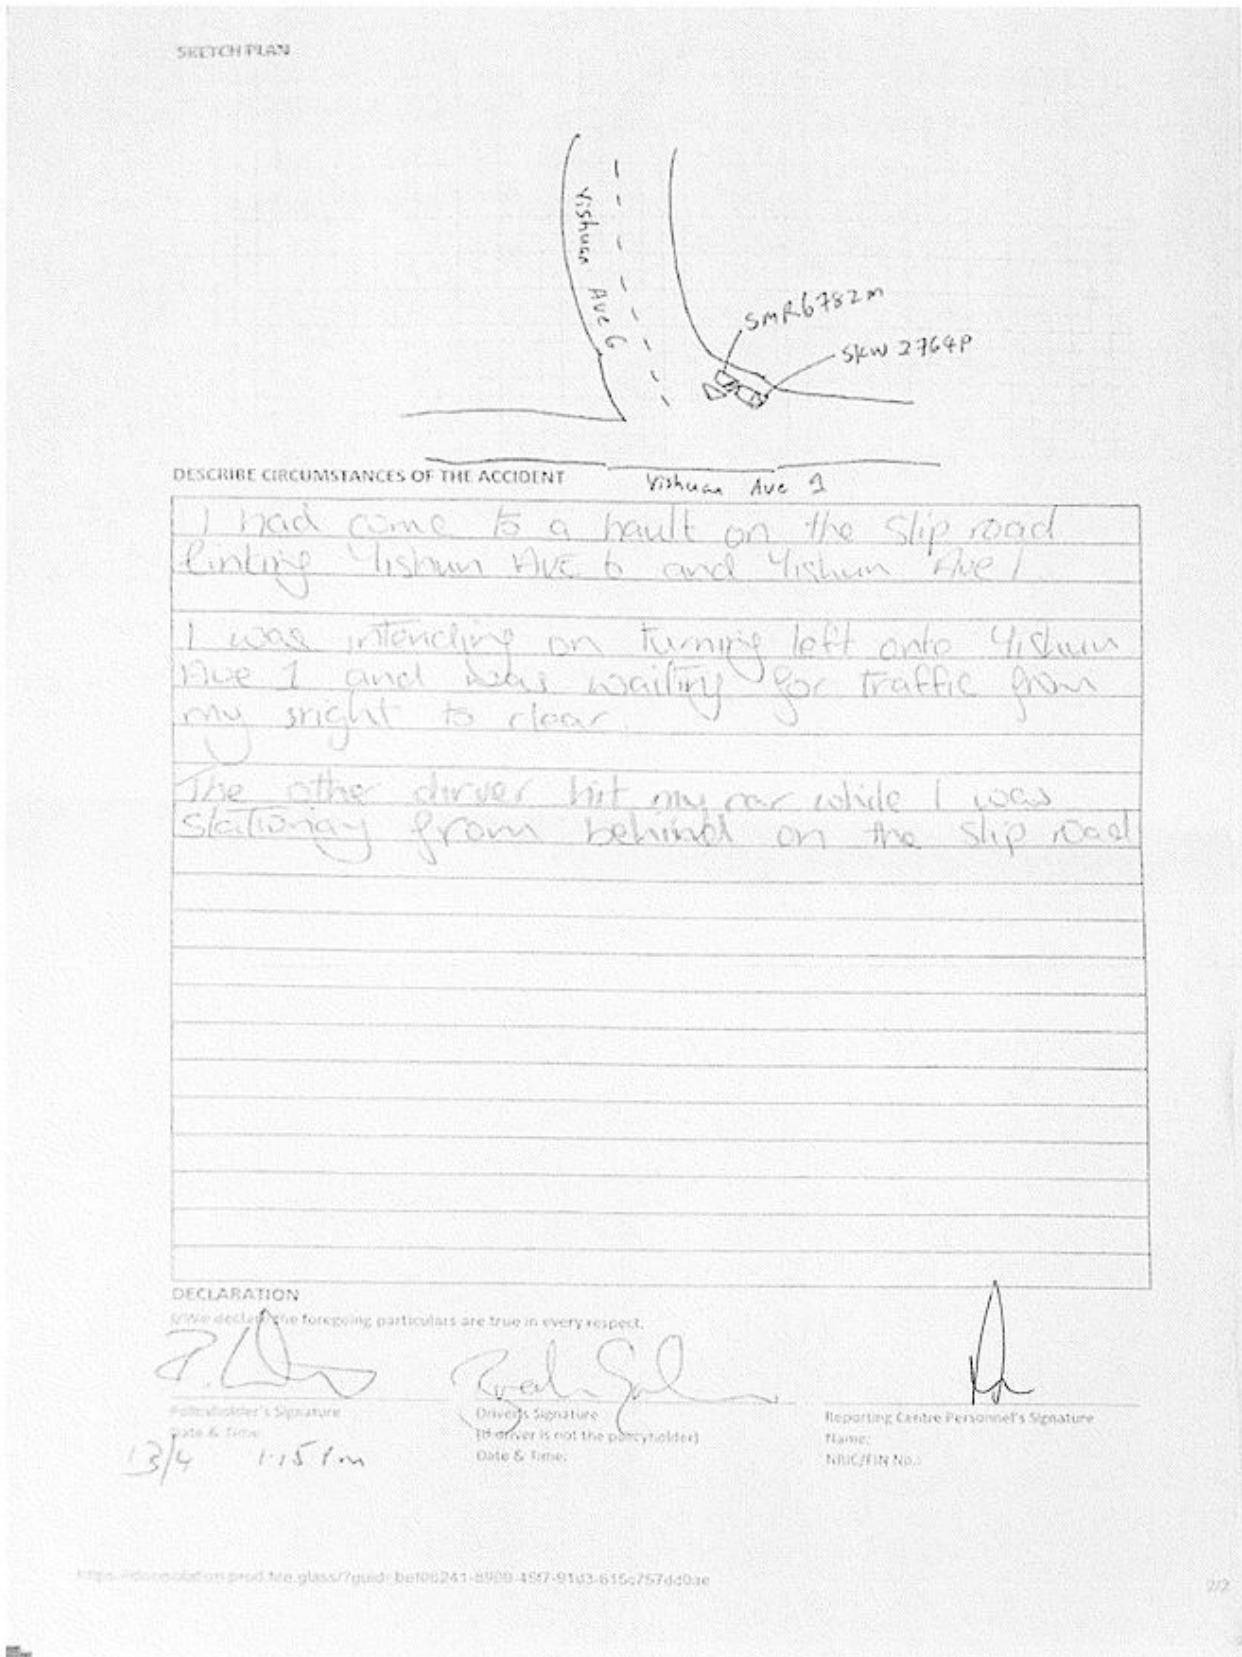 SKETCH PLAN
Yishuan Ave 6
SMR6782m
SKW 2764P
DESCRIBE CIRCUMSTANCES OF THE ACCIDENT
Yishuan Ave 1
I had come to a hault on the slip road
linking Yishun AVE 6 and Yishun Ave 1
I was intending on turning left onto Yishun
Ave 1 and was waiting for traffic from
my sright to clear.
The other dirver hit my car while I was
stationay from behind on the slip road
DECLARATION
I/We declare the foregoing particulars are true in every respect.
Policyholder's Signature
Date & Time
13/4 1:15 Pm
Driver's Signature
(If driver is not the policyholder)
Date & Time:
Reporting Centre Personnel's Signature
Name:
NRIC/FIN No.:
2/2